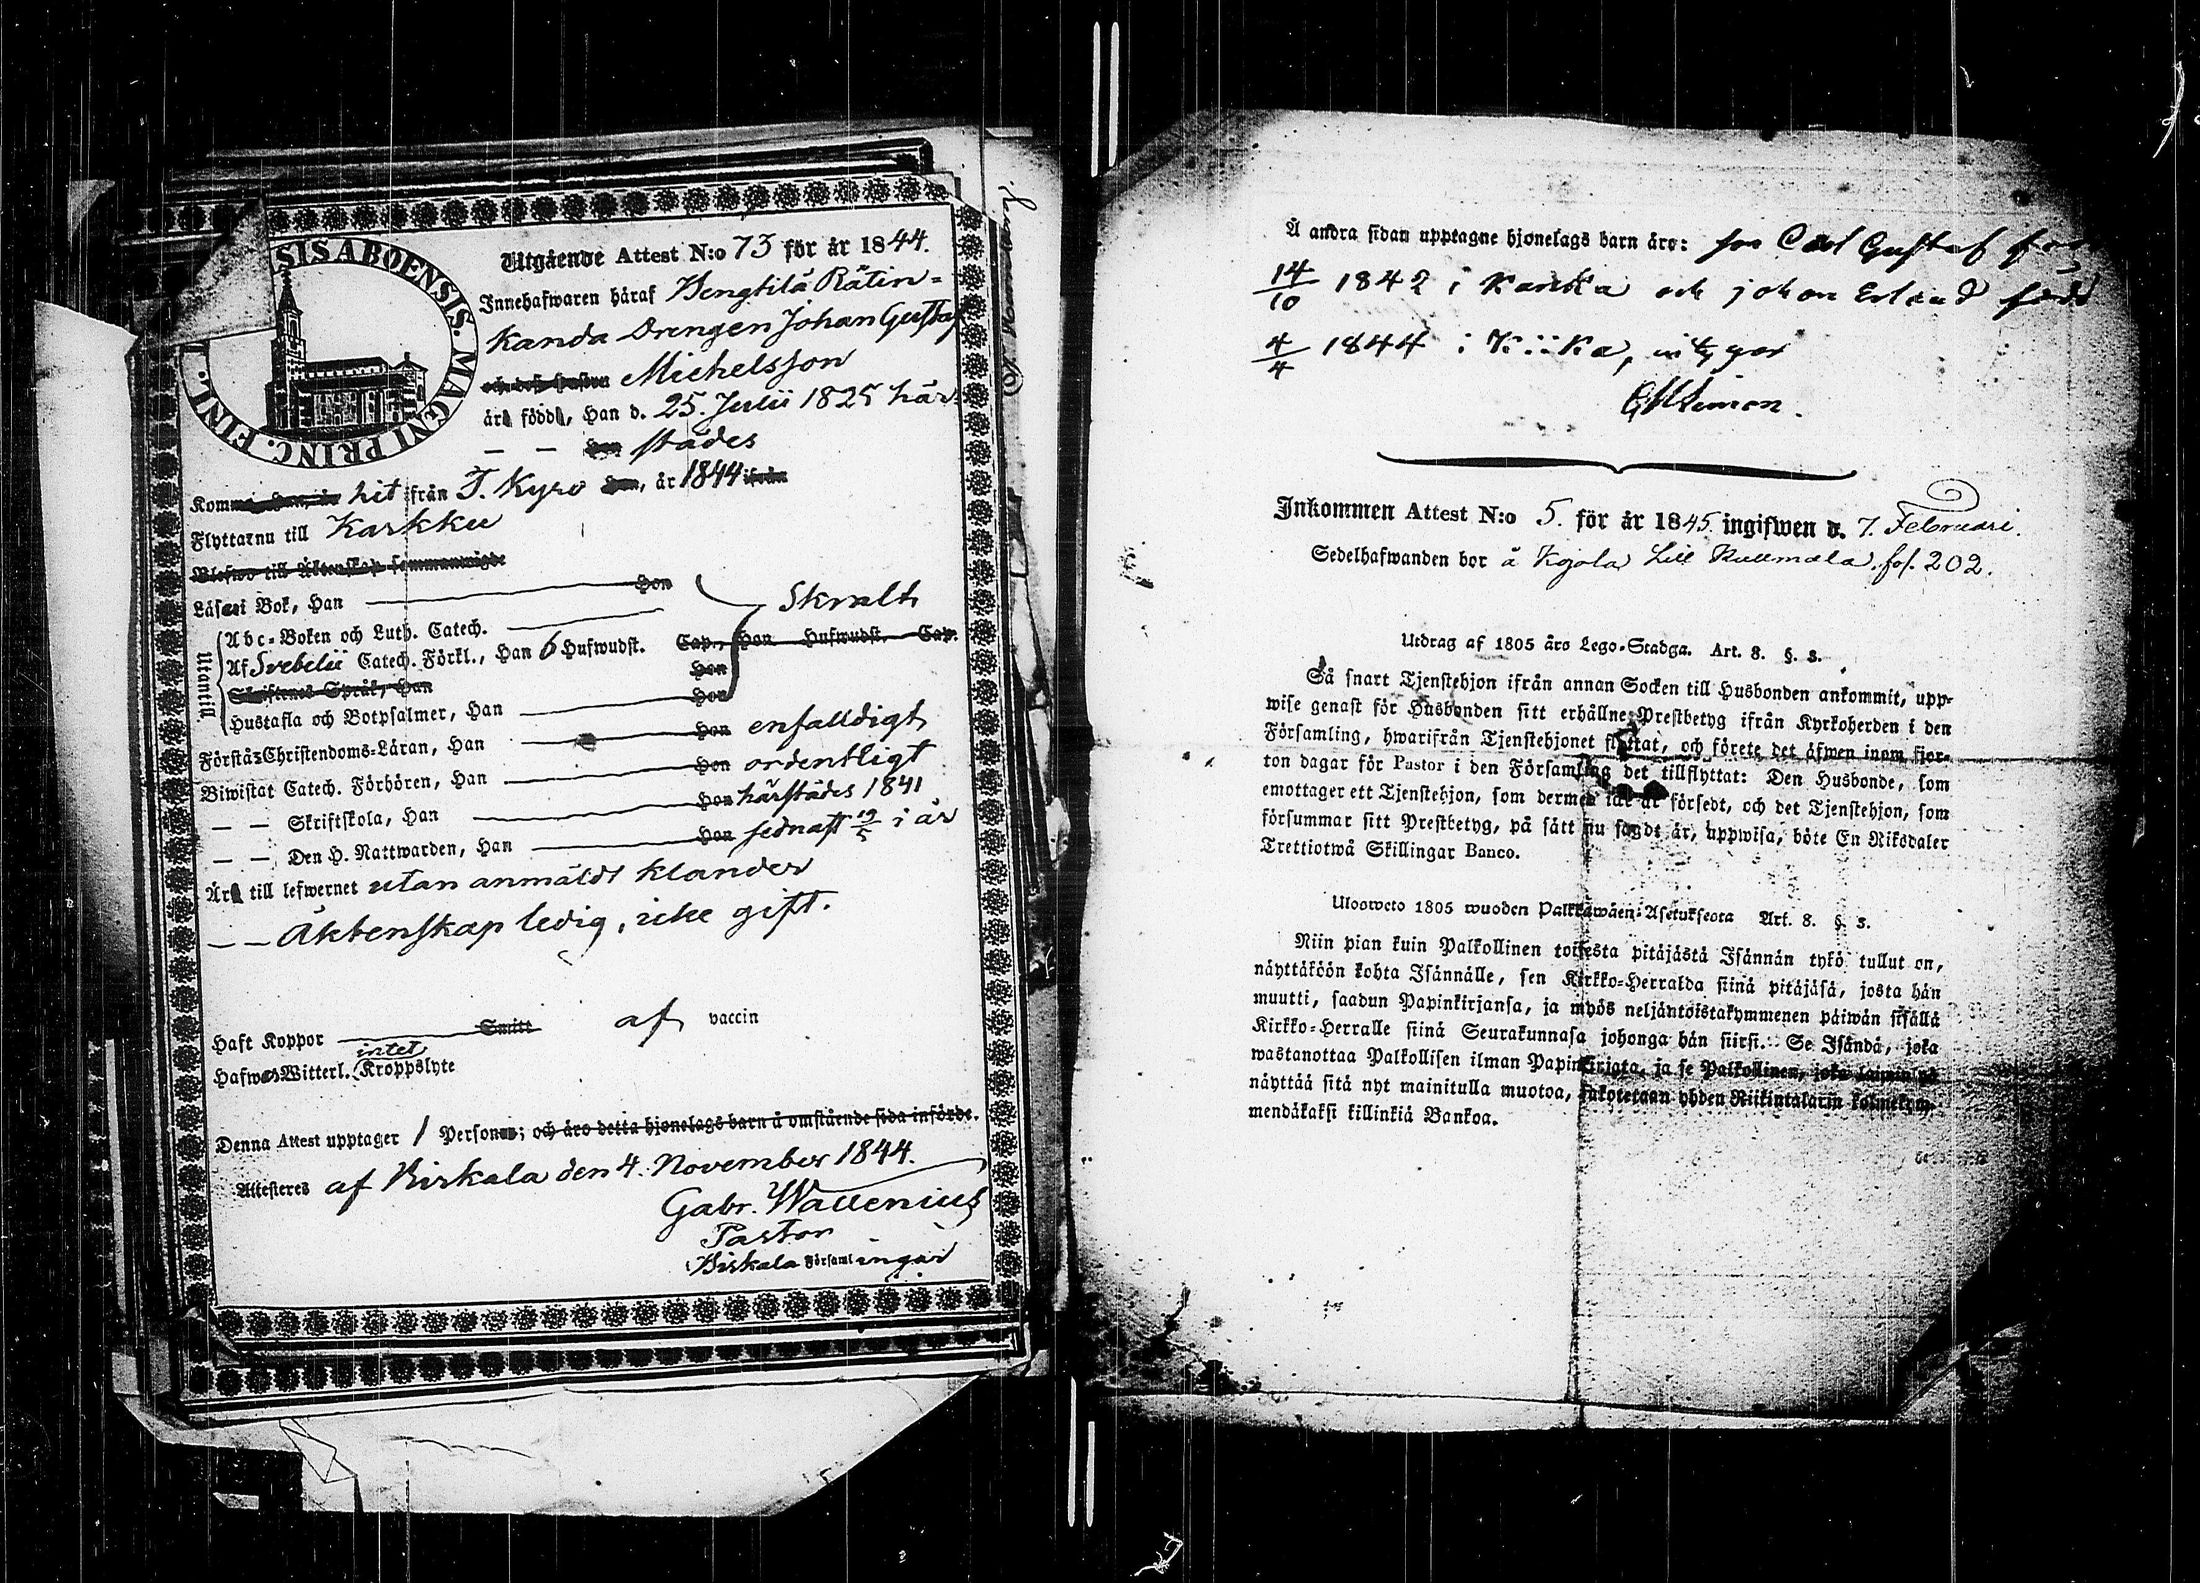 SIS ABOENSIS. MAGNI PRINC. FINL.
Utgående Attest N:o 73 för år 1844.
Innehafwaren häraf Bengtilä Rätin-
kanda Drengen Johan Gustaf
och dess hustru Michelsson
äro födde, Han d. 25. Julii 1825 här-
— — Hon städes
hit ifrån T. Kyro Hon, år 1844 ifrån
Flyttar nu till Karkku
Blefwo till Äktenskap sammanwigde
Läser i Bok, Han Hon Skralt
Utantill
Abc-Boken och Luth. Catech.
Af Svebelii Catech. Förkl., Han 6 Hufwudst. Cap., Hon Hufwudst. Cap.
Hon
Skriftenes Språk, Han
Hustafla och Botpsalmer, Han Hon
Förstår Christendoms-Läran, Han Hon enfalldigt
Biwistat Catech. Förhören, Han Hon ordentligt
— — Skriftskola, Han Hon härstädes 1841
— — Den H. Nattwarden, Han Hon sednast 19/5 i år
Är till lefwernet utan anmäldt klander
— — Äktenskap ledig, icke gift.
Haft Koppor Smitt af vaccin
intet
Hafwa Witterl. Kroppslyte
Denna Attest upptager 1 Personer; och äro detta hjonelags barn å omstående sida införde.
Attesteres af Birkala den 4. November 1844.
Gabr. Wallenius
Pastor
Birkala Församlingar
Å andra sidan upptagne hjonelags barn äro: son Carl Gustaf
14/10 1842 i Karkku och Johan Erland född
4/4 1844 i Kiika,
Inkommen Attest N:o 5. för år 1845. ingifwen d. 7. Februari.
Sedelhafwanden bor å Kojola Lill Kullmala. fol. 202.
Utdrag af 1805 års Lego-Stadga. Art. 8. §. 3.
Så snart Tjenstehjon ifrån annan Socken till Husbonden ankommit, upp-
wise genast för Husbonden sitt erhållne Prestbetyg ifrån Kyrkoherden i den
Församling, hwarifrån Tjenstehjonet flyttat, och förete det äfwen inom fjor-
ton dagar för Pastor i den Församling det tillflyttat: Den Husbonde, som
emottager ett Tjenstehjon, som dermed icke är försedt, och det Tjenstehjon, som
försummar sitt Prestbetyg, på sätt nu sagdt är, uppwisa, böte En Riksdaler
Trettiotwå Skillingar Banco.
Ulosweto 1805 wuoden Palkkawäen-Asetuksesta Art. 8. §. 3.
Niin pian kuin Palkollinen toisesta pitäjästä Isännän tykö tullut on,
näyttäköön kohta Isännälle, sen Kirkko-Herralda siinä pitäjäsä, josta hän
muutti, saadun Papinkirjansa, ja myös neljäntoistakymmenen päiwän sisällä
Kirkko-Herralle siinä Seurakunnasa johonga hän siirsi. Se Isändä, joka
wastanottaa Palkollisen ilman Papinkirjata, ja se Palkollinen, joka laimin lyö
näyttää sitä nyt mainitulla muotoa, sakotetaan yhden Riikintalarin kolmekym-
mendäkaksi killinkiä Bankoa.